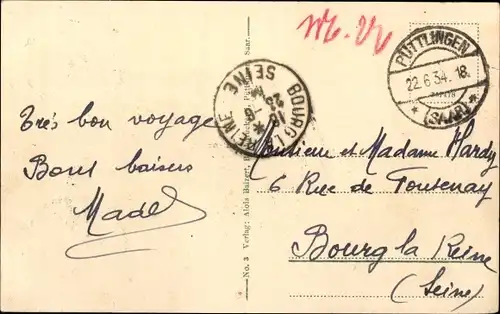 Très bon voyage
Bons baisers
Madel
No. 3 Verlag: Alois Balzert,
Saar.
BOURG REINE
SEINE
18
23
PÜTTLINGEN
22.6.34. 18.
* (SAAR) *
Monsieur et Madame Hardy
6 Rue de Fontenay
Bourg la Reine
(Seine)